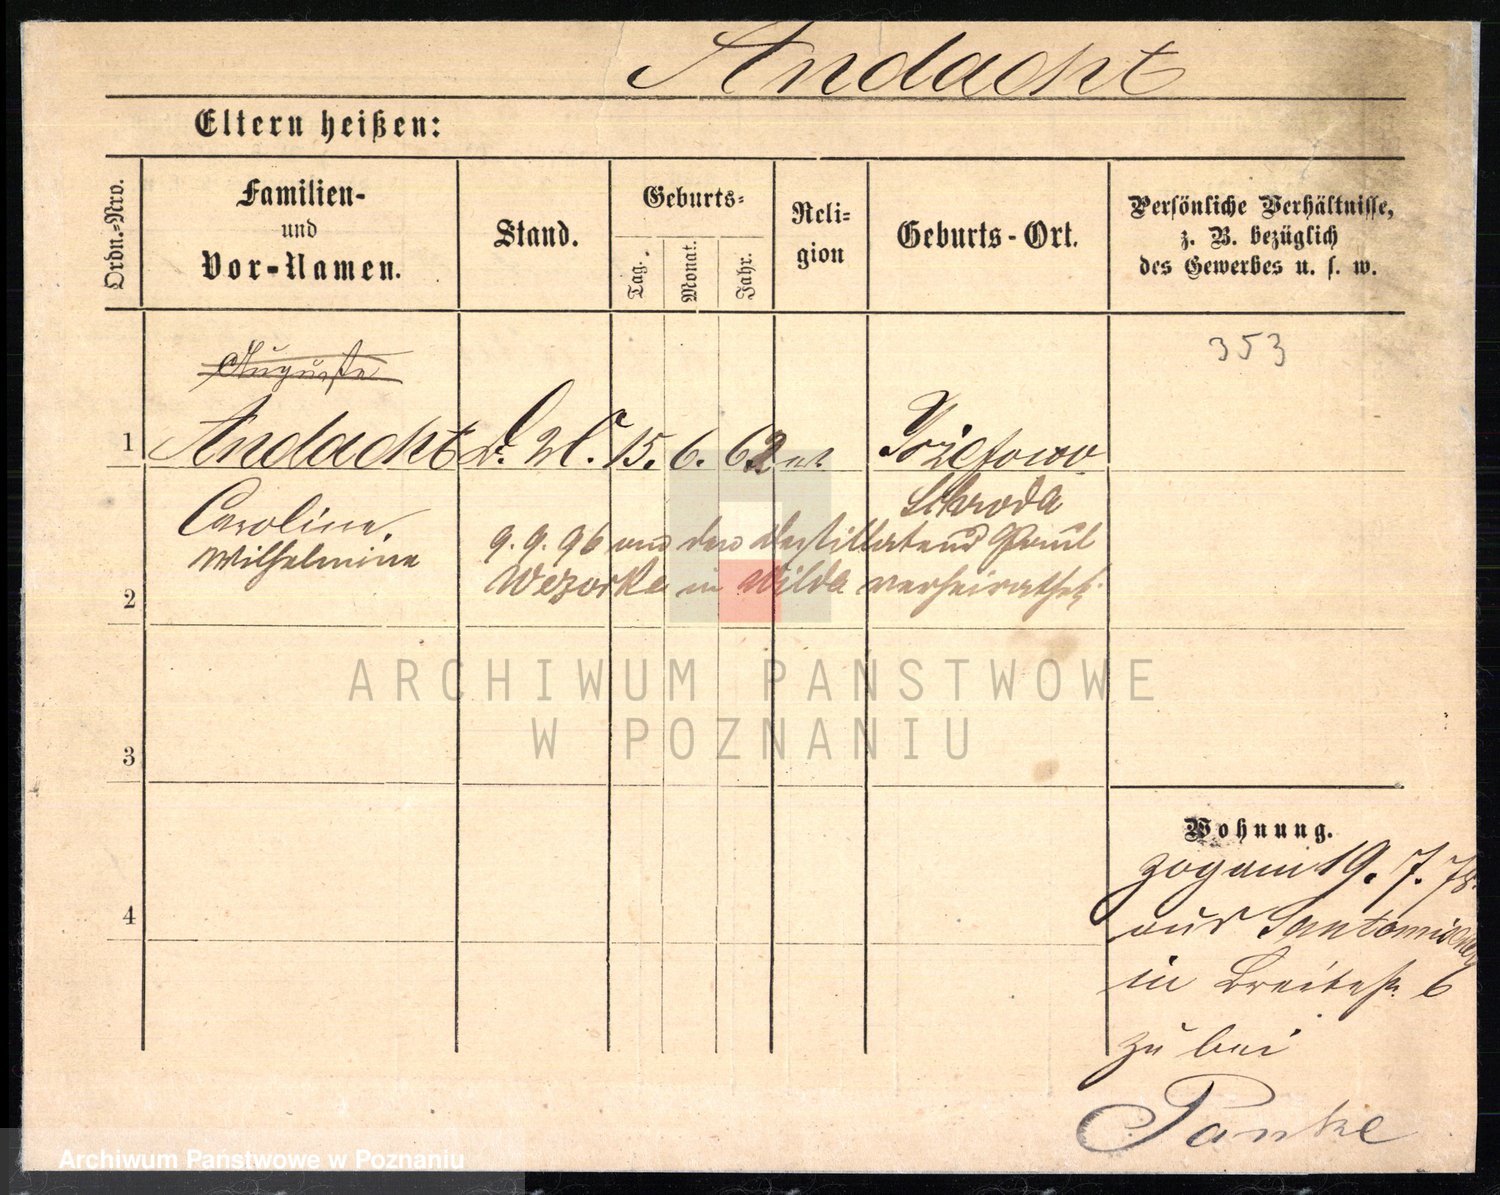 Andacht
Eltern heißen:
Ordn.-Nro.
Familien-
und
Vor-Namen.
Stand.
Geburts-
Tag.
Monat.
Jahr.
Reli-
gion
Geburts-Ort.
Persönliche Verhältnisse,
z. B. bezüglich
des Gewerbes u. s. w.
353
Auguste
1 Andacht D. M. 15. 6. 62 ev. Józefowo
Schroda
Caroline,
Wilhelmine
9. 9. 96 an den Destillateur Paul
Wezorke in Wilda verheirathet.
2
ARCHIWUM PAŃSTWOWE
W POZNANIU
3
Wohnung.
zog am 19. 7. 78.
aus Santomischel
in Breitestr. 6
zu bei
Panke
4
Archiwum Państwowe w Poznaniu